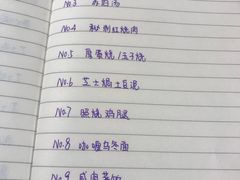 No.3
No.4 秘制红烧肉
No.5 厚蛋烧/玉子烧
No.6 芝士焗土豆泥
No.7 照烧鸡腿
No.8 咖喱乌冬面
No.9 咸肉菜饭